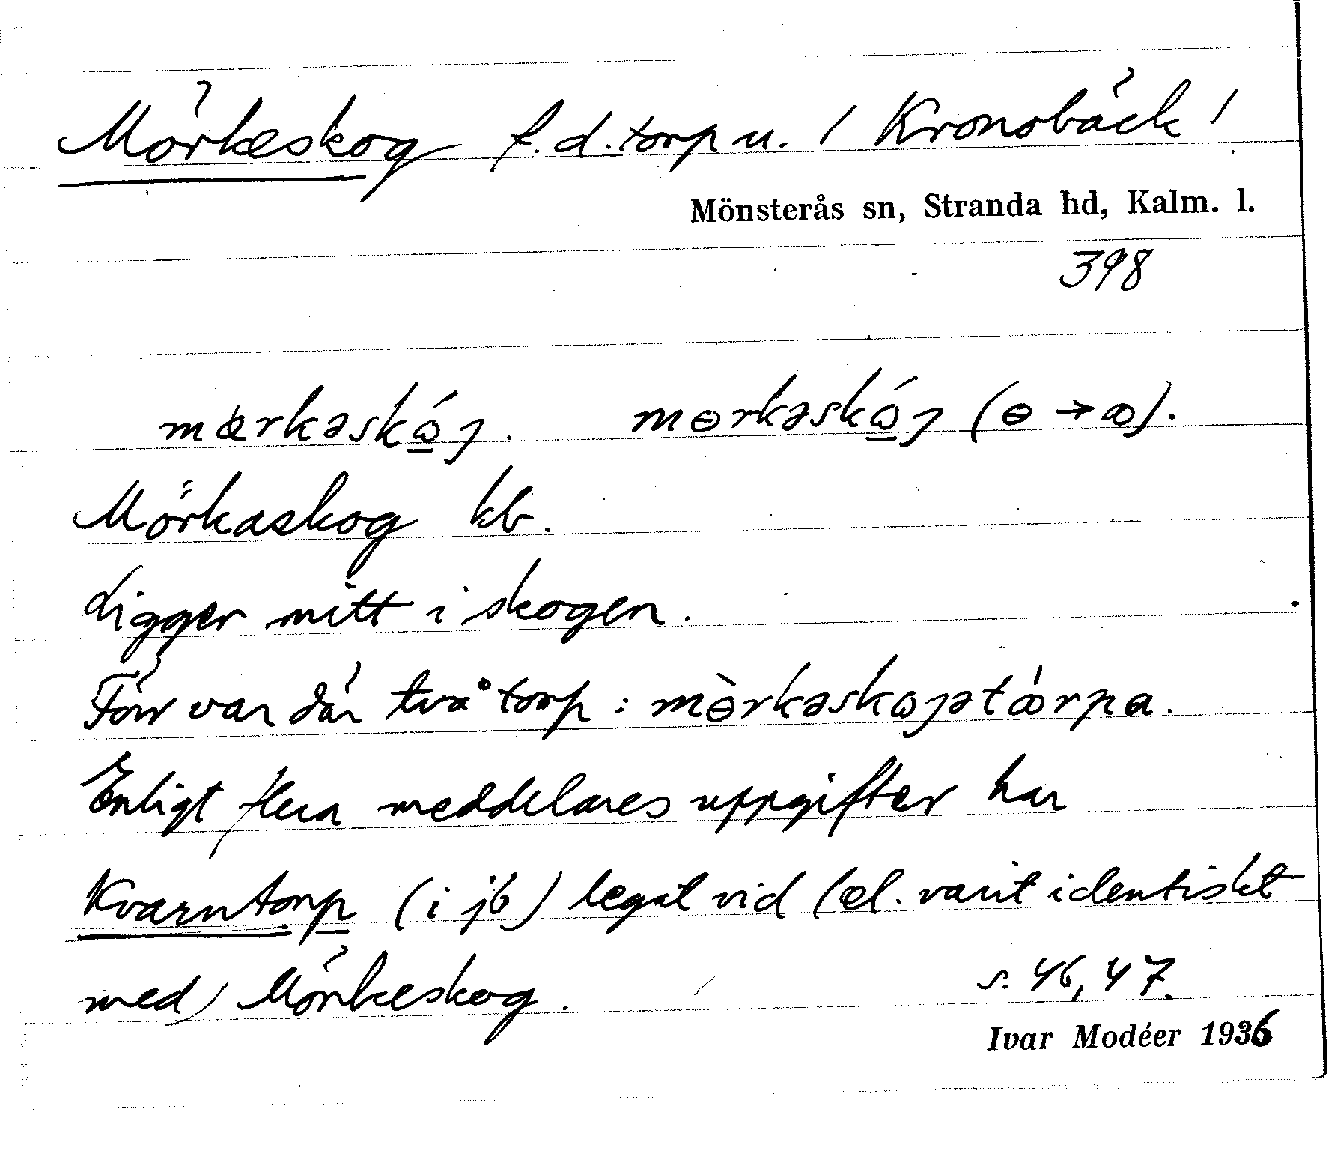 Mörkeskog f.d. torp u. / Kronobäck /
Mönsterås sn, Stranda hd, Kalm. l.
398
mœrkəskɷ́ȷ. mɵrkəskɷ́ȷ (ɵ → œ).
Mörkaskog kb.
Ligger mitt i skogen.
Förr var där två torp: mɵ̀rkəskɷȷətɷ́rpa.
Enligt flera meddelares uppgifter har
Kvarntorp (i jb) legat vid (el. varit identiskt
med) Mörkeskog. s. 46, 47.
Ivar Modéer 1936